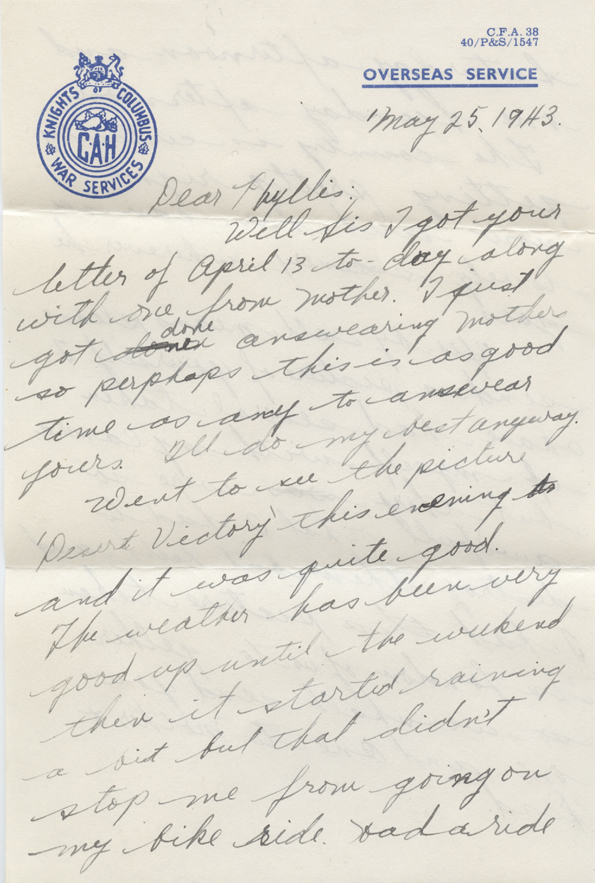 C.F.A. 38
40/P&S/1547
OVERSEAS SERVICE
KNIGHTS OF COLUMBUS
C.A.H
WAR SERVICES
May 25, 1943.
Dear Phyllis:
Well Sis I got your
letter of April 13 to-day along
with one from Mother. I just
done
got answearing Mothers
so perphaps this is as good
time as any to answear
yours. I'll do my best anyway.
Went to see the picture
'Desert Victory' this evening
and it was quite good.
The weather has been very
good up until the weekend
then it started raining
a bit but that didn't
stop me from going on
my bike ride. Had a ride